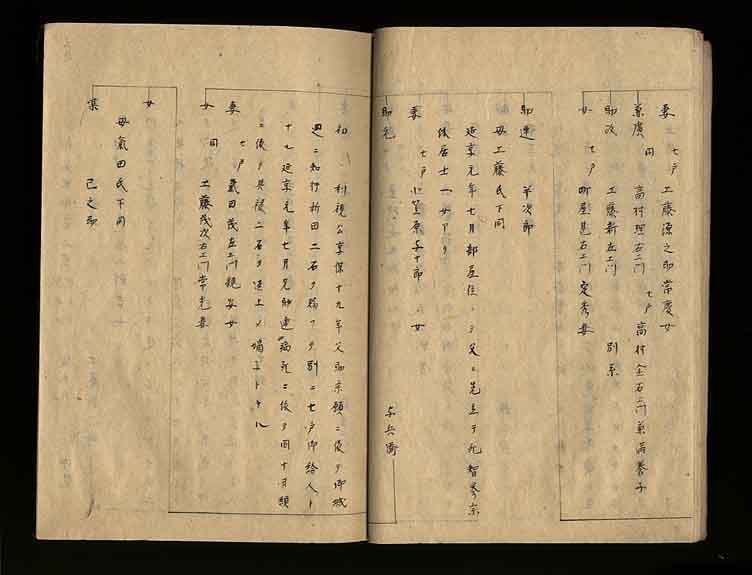 妻 七戸 工藤源之助常慶女
兼廣 同 高村理右エ門 七戸 高村金右エ門兼満養子
助次 工藤新左エ門 別系
女 七戸 町屋甚右エ門定秀妻
助連 平次郎
母工藤氏下同
延享元年七月部屋住ニテ父ニ先立テ死智峯宗
俊居士一女アリ
妻 七戸 小笠原 十郎 女
助光 与兵衛
初 利視公享保十九年父助京願ニ依テ御城
廻ニ知行新田二石ヲ賜フテ別ニ七戸御給人ト
十九 延享元年七月兄助連病死ニ依テ同十月願
ニ依テ其禄二石ヲ返上メ嫡子トナル
妻 七戸 氣田茂左エ門 女
女 同 工藤茂次右エ門常光妻
女
母氣田氏下同
某 己之助